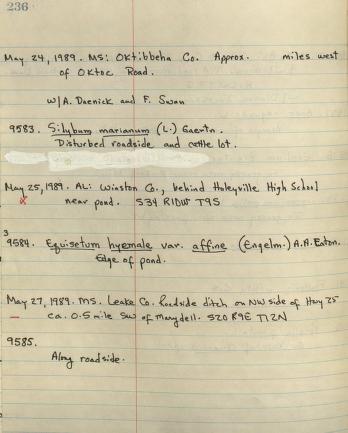 236
May 24, 1989. MS: Oktibbeha Co. Approx. miles west
of Oktoc Road.
w/A. Daenick and F. Swan
9583. Silybum marianum (L.) Gaertn.
Disturbed roadside and cattle lot.
May 25, 1989. AL: Winston Co., behind Haleyville High School
x near pond. S34 R10W T9S
3
9584. Equisetum hyemale var. affine (Engelm.) A.A. Eaton.
Edge of pond.
May 27, 1989. MS. Leake Co. Roadside ditch on NW side of Hwy 25
ca. 0.5 mile SW of Marydell. S20 R9E T12N
9585.
Along roadside.